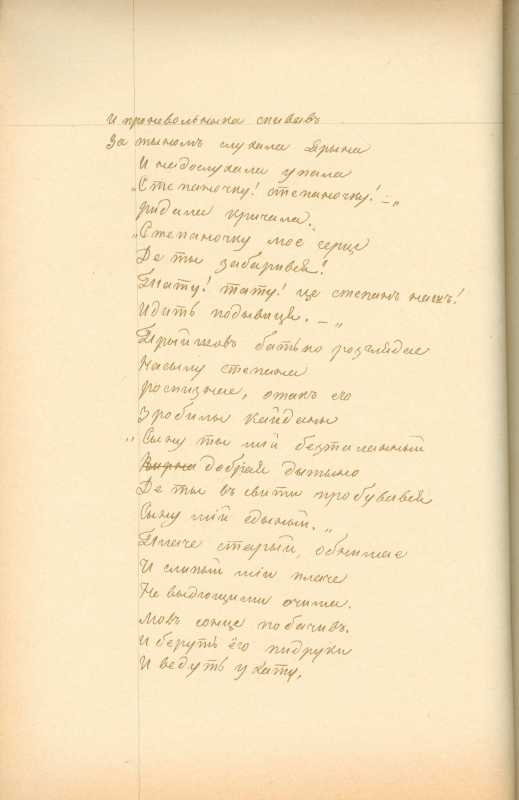 И проневольныка спивавъ
За тыномъ слухала Ярына
И недослухала упала
„Степаночку! степаночку! —„
рыдала кричала.
„Степаночку мое серце
Де ты забарився!
Тату! тату! це степанъ нашъ!
Идить подывиця. —„
Прыйшовъ батько розглядае
Насылу степана
роспизнае, отакъ его
Зробилы кайданы
„Сыну ты мій безталанный
Вирна добрая дытыно
Де ты въ свити пробувався
Сыну мій едыный. „
Плаче старый, обнимае
И слипый мій плаче
Не выдющими очима.
Мовъ сонце побачивъ.
И беруть ёго пидруки
И ведуть у хату,